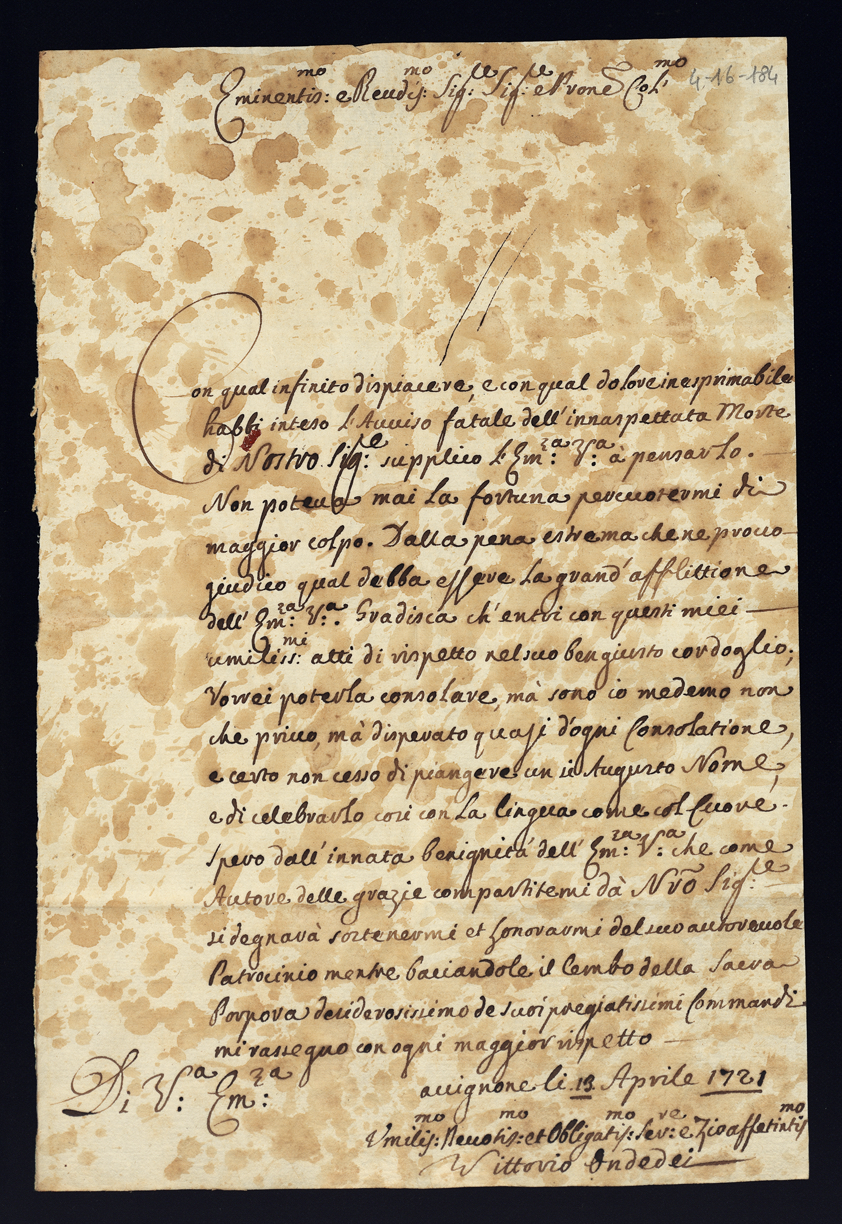 4-16-184
Eminentis:mo e Reudis:mo Sig:re Sig:re e Prone Col:mo
Con qual infinito dispiacere, e con qual dolore inesprimabile
habbi inteso l'Auuiso fatale dell'innaspettata Morte
di Nostro Sig:re supplico l'Em:za V:a à pensarlo.
Non poteua mai la fortuna percuotermi di
maggior colpo. Dalla pena estrema che ne prouo
giudico qual debba essere la grand'afflittione
dell'Em:za V:a. Gradisca ch'entri con questi miei
umiliss:mi atti di rispetto nel suo ben giusto cordoglio;
Vorrei poterla consolare, mà sono io medemo non
che priuo, mà disperato quasi d'ogni Consolatione,
e certo non cesso di piangere un sì Augusto Nome,
e di celebrarlo così con la lingua come col Cuore.
Spero dall'innata benignità dell'Em:za V:a che come
Autore delle grazie compartitemi dà Nrõ Sig:re
si degnarà sostenermi et honorarmi del suo autoreuole
Patrocinio mentre baciandole il Lembo della Sacra
Porpora desiderosissimo de suoi pregiatissimi Commandi
mi rassegno con ogni maggior rispetto
Di V:a Em:za
auignone li 13 Aprile 1721
Vmilis:mo Deuotis:mo et Obligatis:mo Ser:re e Zio affetintismo
Vittorio Ondedei